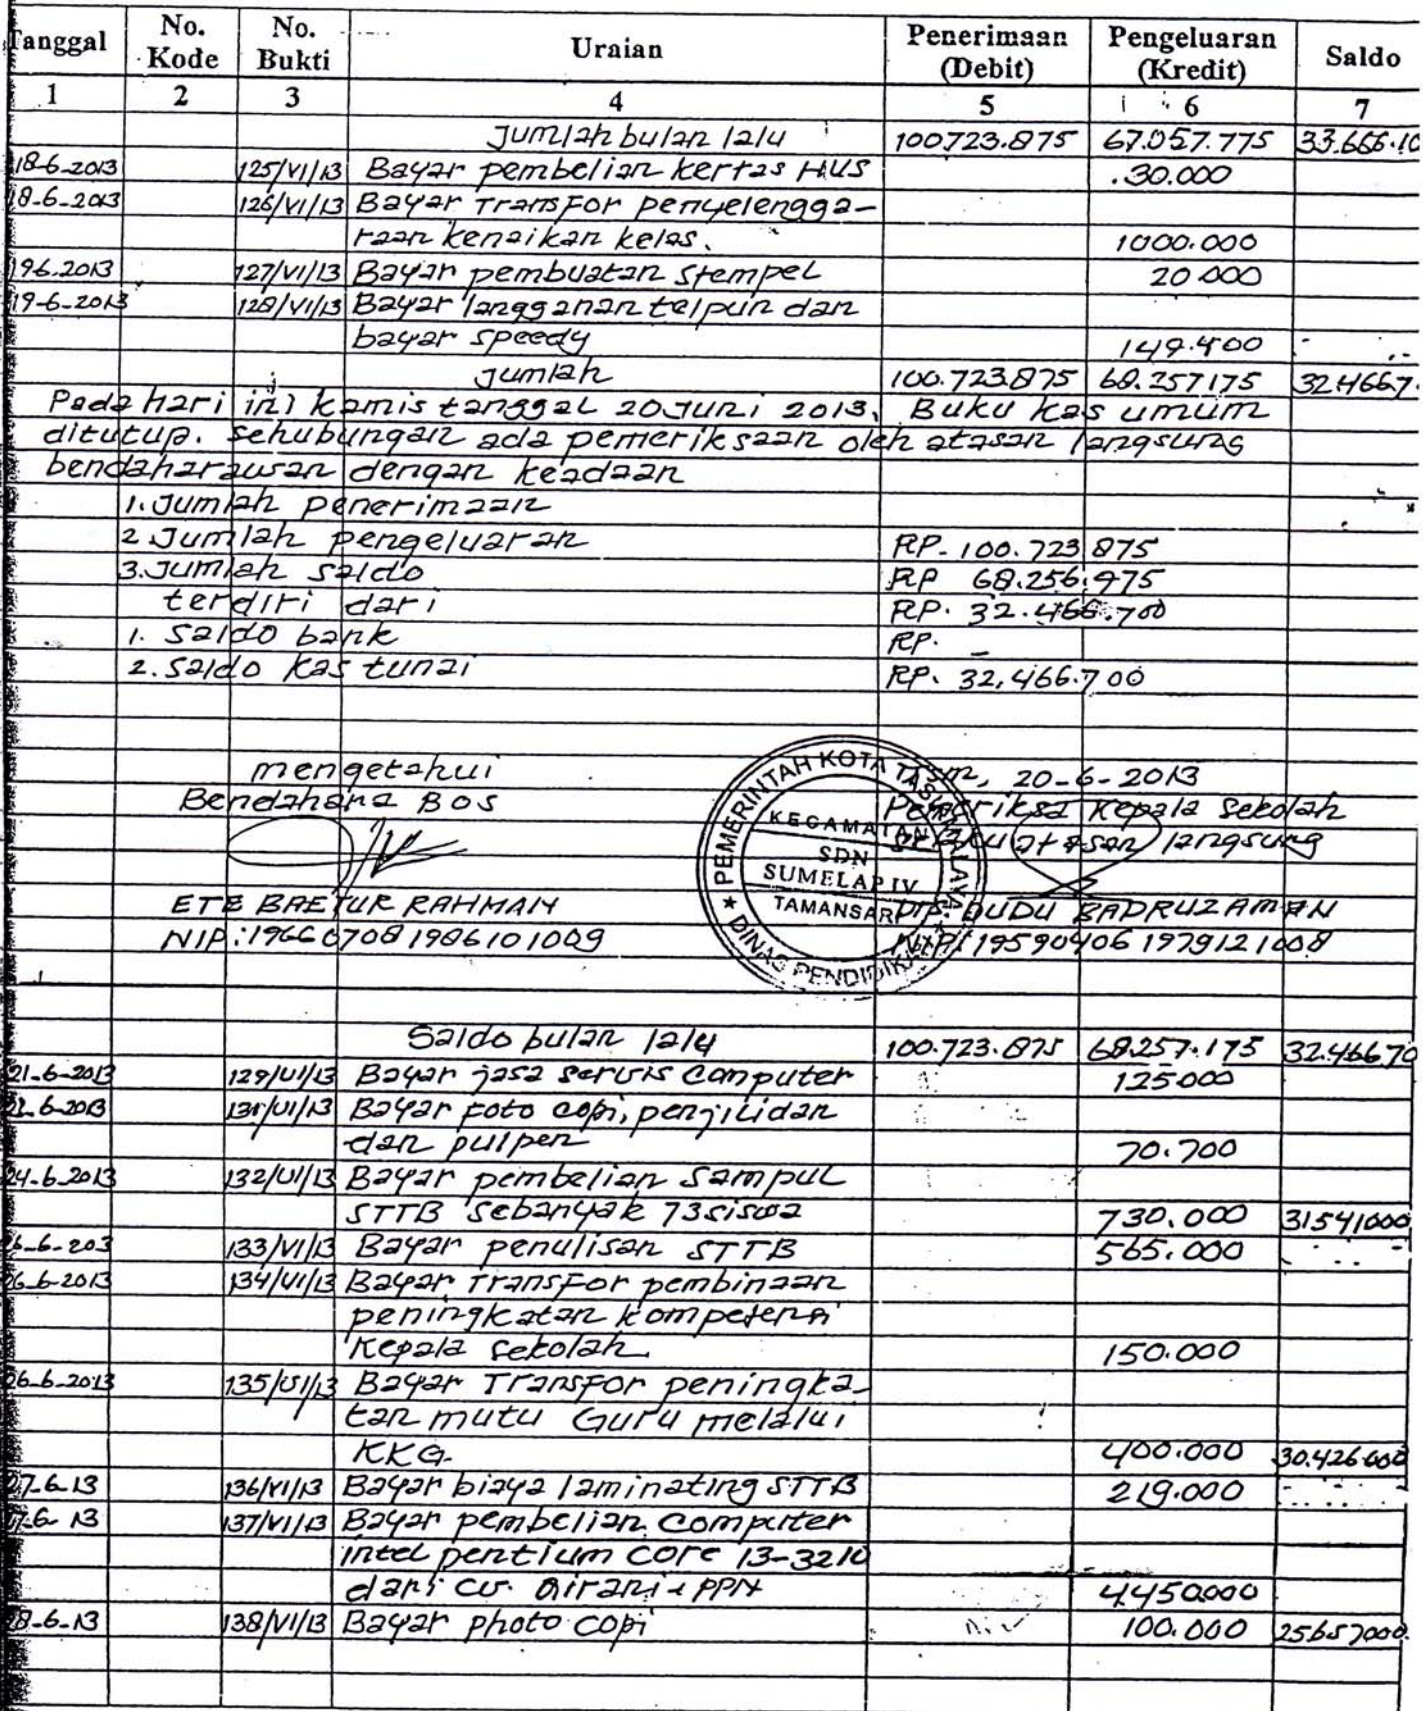 Tanggal No. Kode No. Bukti Uraian Penerimaan (Debit) Pengeluaran (Kredit) Saldo
1 2 3 4 5 6 7
Jumlah bulan lalu 100.723.875 67.057.775 33.666.10
18-6-2013 125/VI/13 Bayar pembelian kertas HUS .30.000
18-6-2013 126/VI/13 Bayar Transfor penyelengga-
raan kenaikan kelas. 1000.000
19.6.2013 127/VI/13 Bayar pembuatan stempel 20.000
19-6-2013 128/VI/13 Bayar langganan telpun dan
bayar speedy 149.400
Jumlah 100.723.875 68.257175 32.466.7.
Pada hari ini kamis tanggal 20 Juni 2013, Buku kas umum
ditutup. sehubungan ada pemeriksaan oleh atasan langsung
bendaharawan dengan keadaan
1. Jumlah penerimaan
2 Jumlah pengeluaran RP. 100.723 875
3. Jumlah saldo RP 68.256.975
terdiri dari RP. 32.466.700
1. Saldo bank RP. _
2. Saldo kas tunai RP. 32,466.700
mengetahui 20-6-2013
Bendahara BOS Pemeriksa Kepala Sekolah
Selaku atasan langsung
ETE BAETUR RAHMAN DUDU BADRUZAMAN
NIP: 196607081986101009 NIP: 195904061979121008
PEMERINTAH KOTA TASIKMALAYA
KECAMATAN
SDN
SUMELAP IV
TAMANSARI
★ DINAS PENDIDIKAN ★
Saldo bulan lalu 100.723.875 68.257.175 32.46670
21-6-2013 129/VI/13 Bayar jasa servis Computer 125.000
22-6-2013 131/VI/13 Bayar foto copi, penjilidan
dan pulpen 70.700
24-6-2013 132/VI/13 Bayar pembelian Sampul
STTB sebanyak 73 siswa 730.000 31541000
6-6-203 133/VI/13 Bayar penulisan STTB 565.000
26-6-2013 134/VI/13 Bayar Transfor pembinaan
peningkatan kompetensi
Kepala sekolah 150.000
26-6-2013 135/VI/13 Bayar Transfor peningka-
tan mutu Guru melalui
KKG. 400.000 30.426.000
27-6-13 136/VI/13 Bayar biaya laminating STTB 219.000
27-6-13 137/VI/13 Bayar pembelian Computer
intel pentium core 13-3210
dari CV. + PPN 4.450.000
28-6-13 138/VI/13 Bayar photo copi 100.000 25657000.